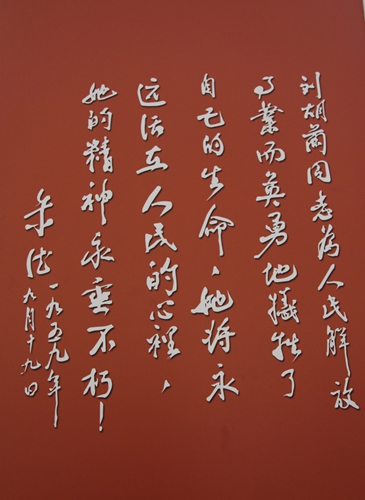 刘胡兰同志为人民解放
事業而英勇地犠牲了
自己的生命，她将永
远活在人民的心裡，
她的精神永垂不朽！
朱德一九五九年
九月十九日